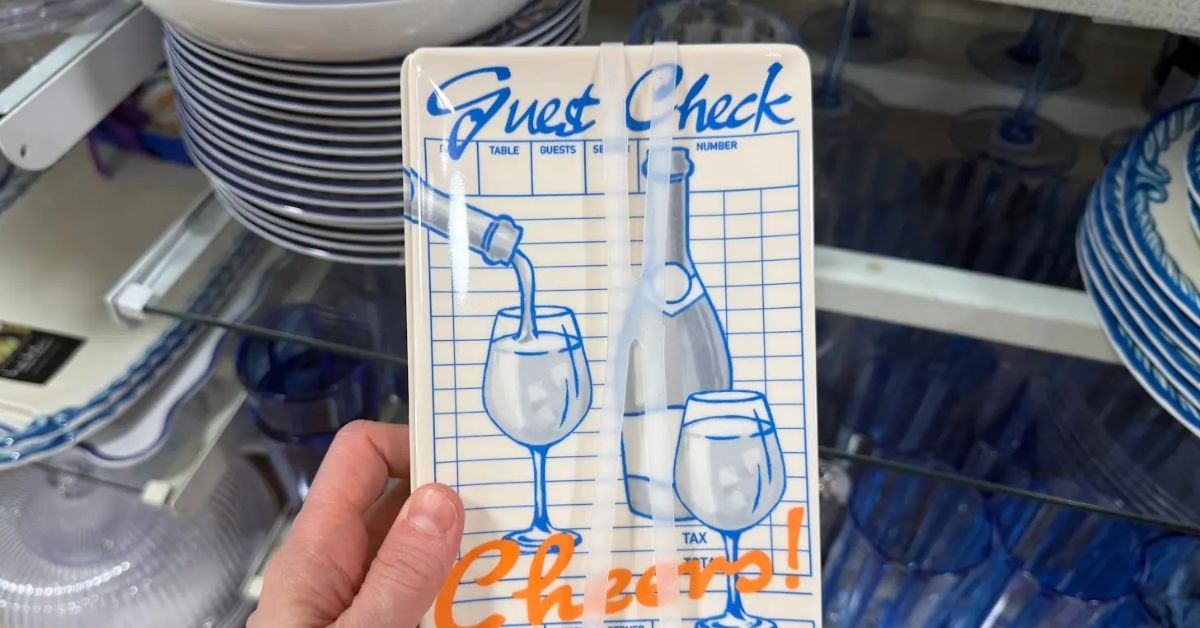 Guest Check
TABLE GUESTS NUMBER
TAX
Cheers!